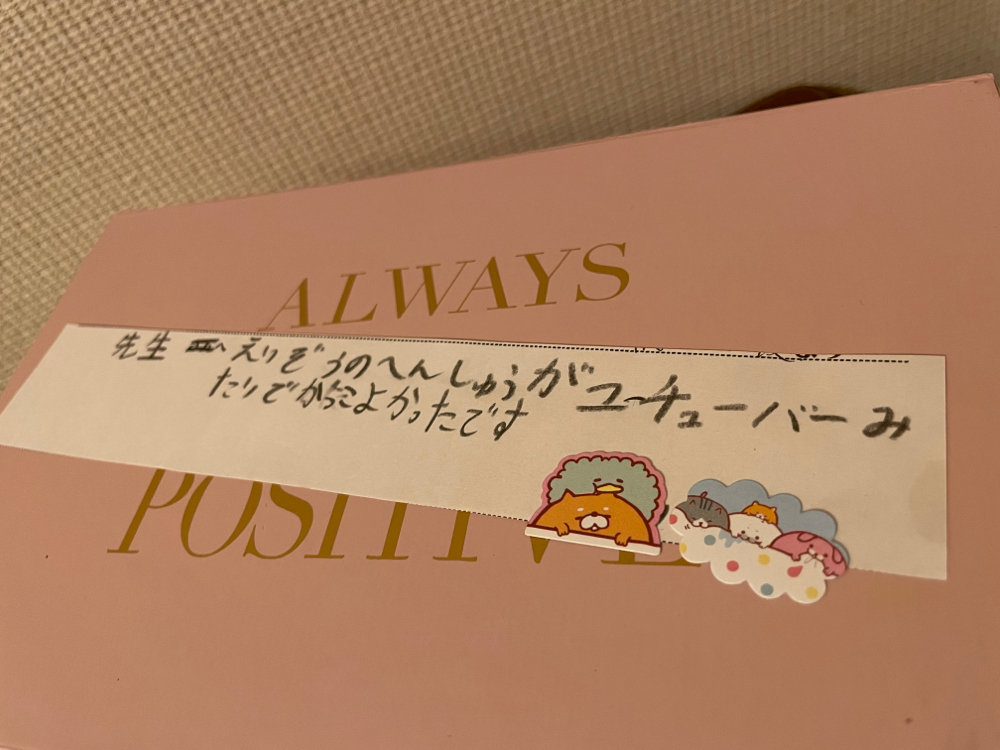 ALWAYS
先生 えいぞうのへんしゅうがユーチューバーみ
たいでかっこよかったです
POSITIVE